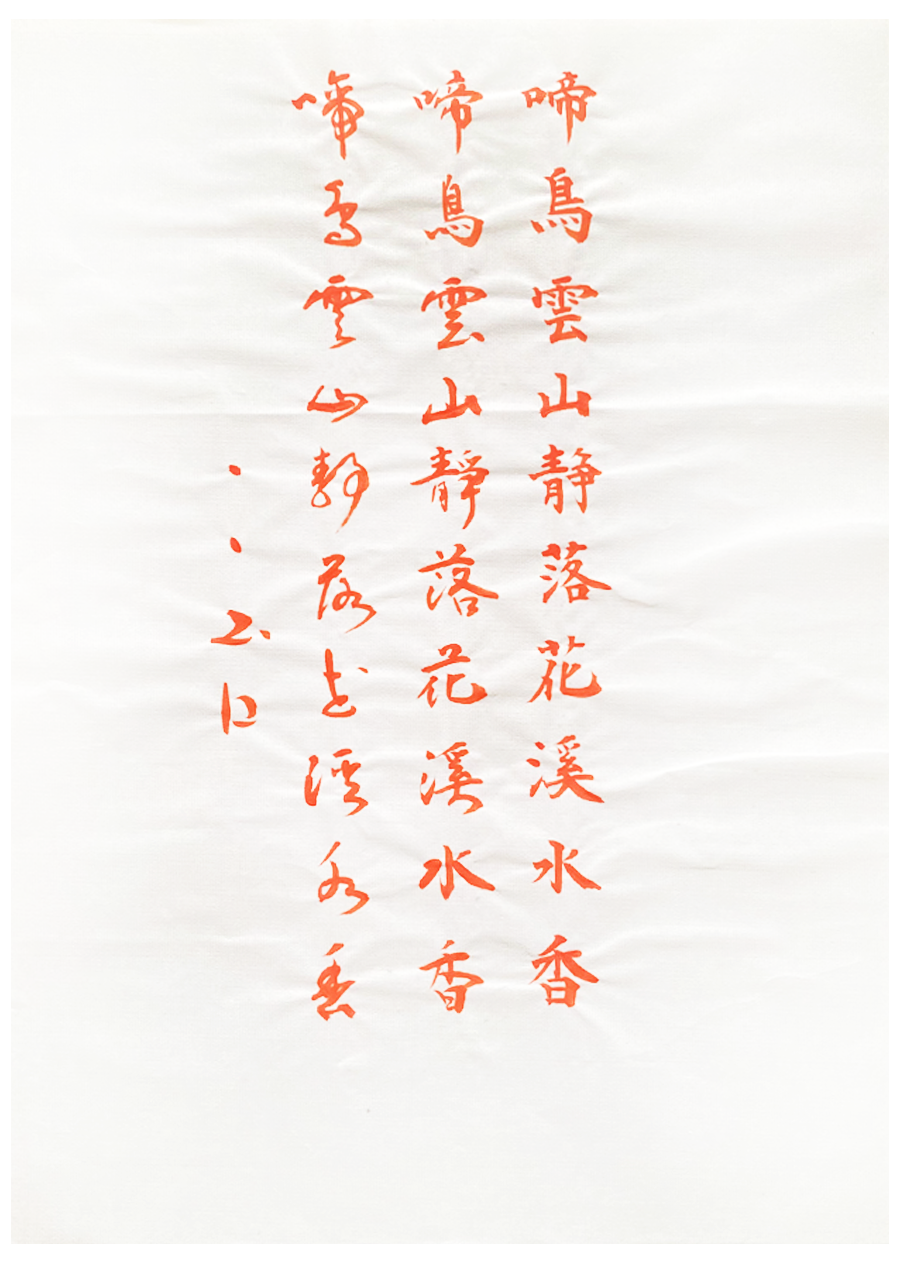 啼鳥雲山静落花溪水香
啼鳥雲山靜落花溪水香
啼鳥雲山静落花溪水香